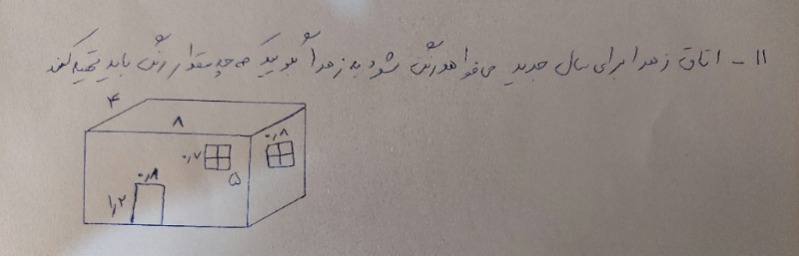 ۱۱ - اتاق زهرا برای سال جدید می‌خواهد رنگ شود به زهرا بگویید که چه مقدار رنگ باید تهیه کند
۴
۸
۰٫۸
۰٫۷
۵
۰٫۸
۱٫۲